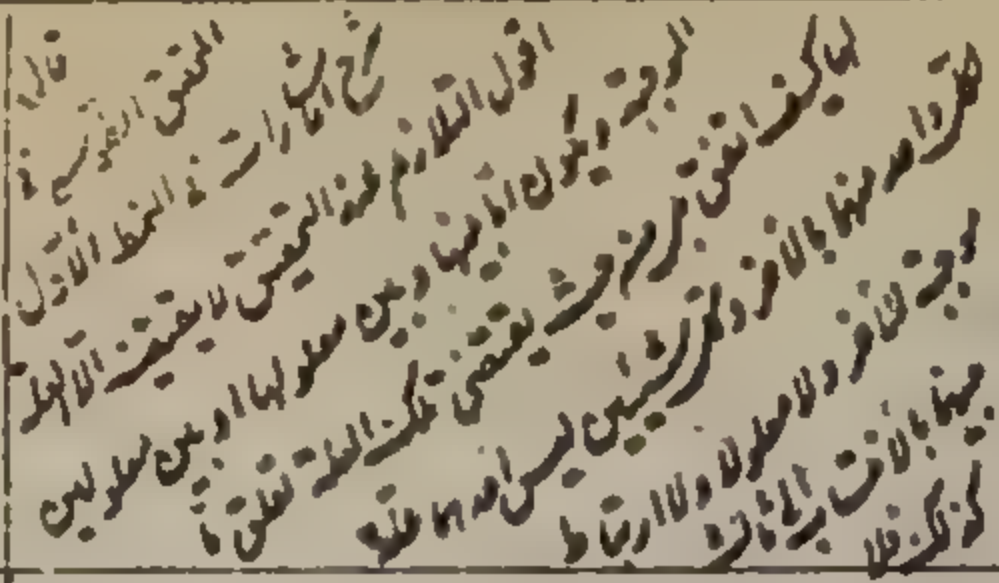 قال
المحقق الطوسي في
شرح الاشارات في النمط الاول
اقول التلازم عند التحقيق لا يقتضيه الا العلة
الموجبة ويكون اما بينها وبين معلولها او بين معلولين
لها لا كيف اتفق بل من حيث يقتضي تلك العلة تعلق ما
لكل واحد منهما بالاخر وكل شيئين ليس احدهما علة
موجبة للاخر ولا معلولا ولا ارتباط
بينهما بالانتساب الى ثالث
كذلك فلا